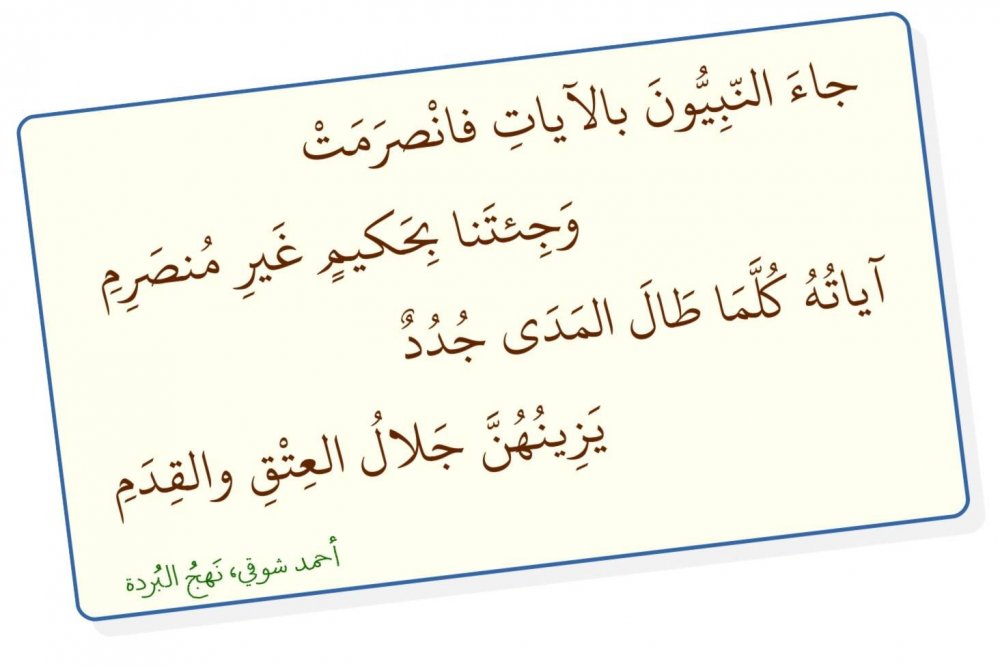 جاءَ النّبِيُّونَ بالآياتِ فانْصرَمَتْ
وَجِئتَنا بِحَكيمٍ غَيرِ مُنصَرِمِ
آياتُهُ كُلَّمَا طَالَ المَدَى جُدُدٌ
يَزِينُهُنَّ جَلالُ العِتْقِ والقِدَمِ
أحمد شوقي، نَهجُ البُردة